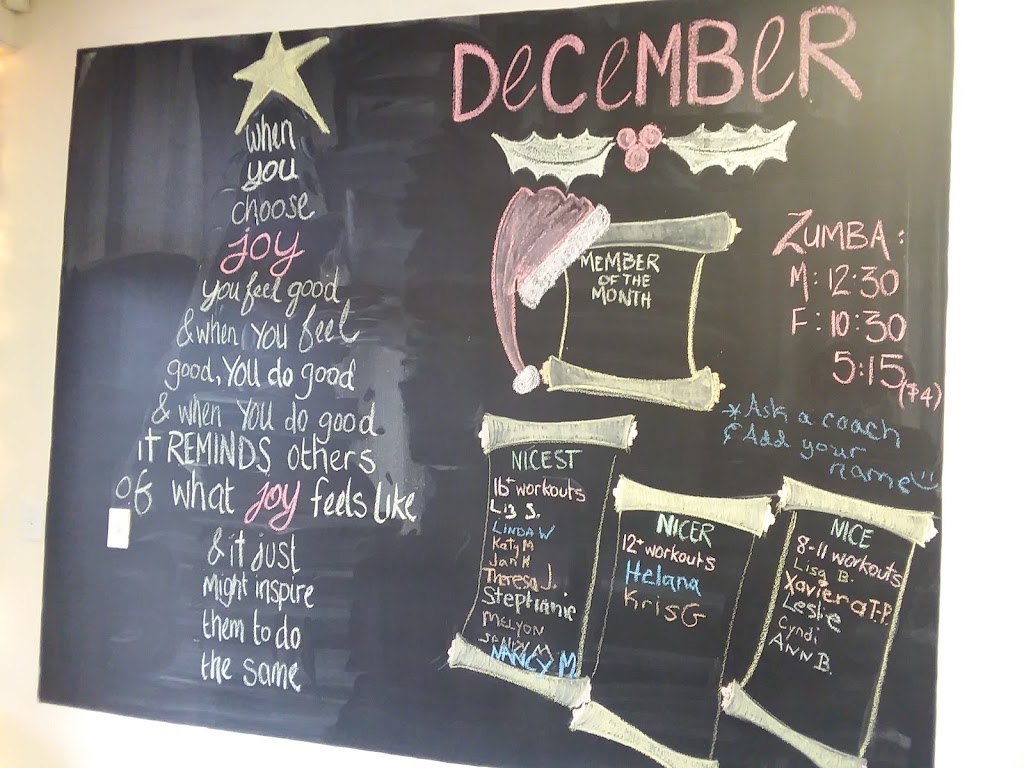 when
you
choose
joy
you feel good
& when you feel
good, you do good
& when you do good
it REMINDS others
of what joy feels like
& it just
might inspire
them to do
the same
DeCeMBeR
MEMBER
OF THE
MONTH
ZUMBA:
M: 12:30
F: 10:30
5:15 (7+4)
*Ask a coach
& Add your
name
NICEST
16+ workouts
Liz S.
LINDA W
Katy M
Jan K
Theresa J.
Stephanie
MELYON
NANCY M.
NICER
12+ workouts
Helana
Kris G
NICE
8-11 workouts
Lisa B.
Xaviera T-P.
Leslie
Cyndi
ANN B.